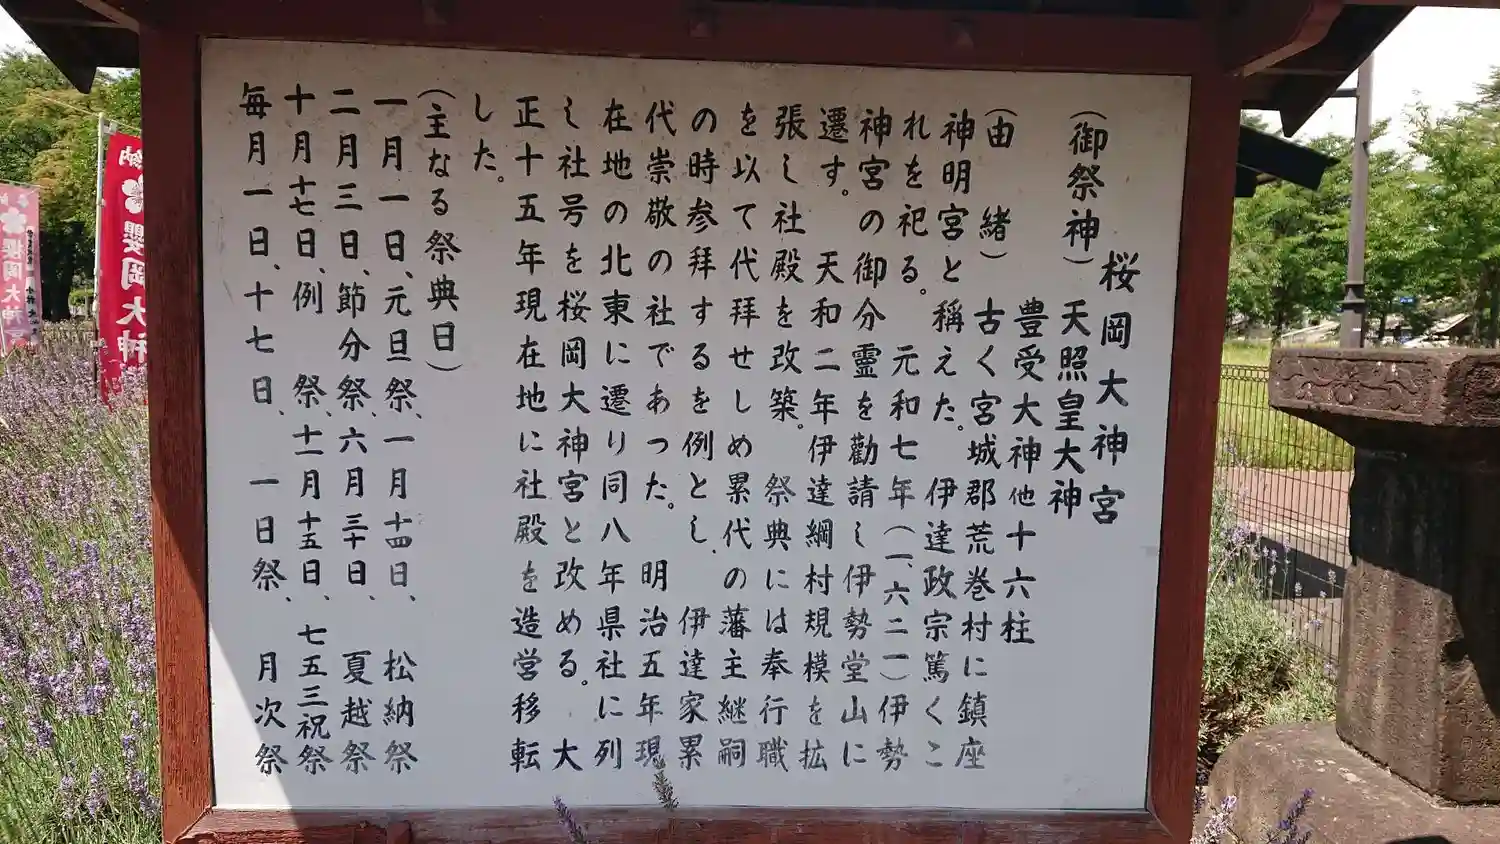 桜岡大神宮
（御祭神）天照皇大神
豊受大神他十六柱
（由　緒）　古く宮城郡荒巻村に鎮座
神明宮と稱えた。　伊達政宗篤くこ
れを祀る。　元和七年（一、六二一）伊勢
神宮の御分霊を勸請し伊勢堂山に
遷す。　天和二年伊達綱村規模を拡
張し社殿を改築。　祭典には奉行職
を以て代拝せしめ累代の藩主継嗣
の時参拝するを例とし、　伊達家累
代崇敬の社であった。　明治五年現
在地の北東に遷り同八年県社に列
し社号を桜岡大神宮と改める。　大
正十五年現在地に社殿を造営移転
した。
（主なる祭典日）
一月一日、元旦祭、一月十四日、　松納祭
二月三日、節分祭、六月三十日、　夏越祭
十月十七日、例　祭、十一月十五日、七五三祝祭
毎月一日、十七日、　一日祭、　月次祭
納
櫻岡大神
櫻岡大神宮